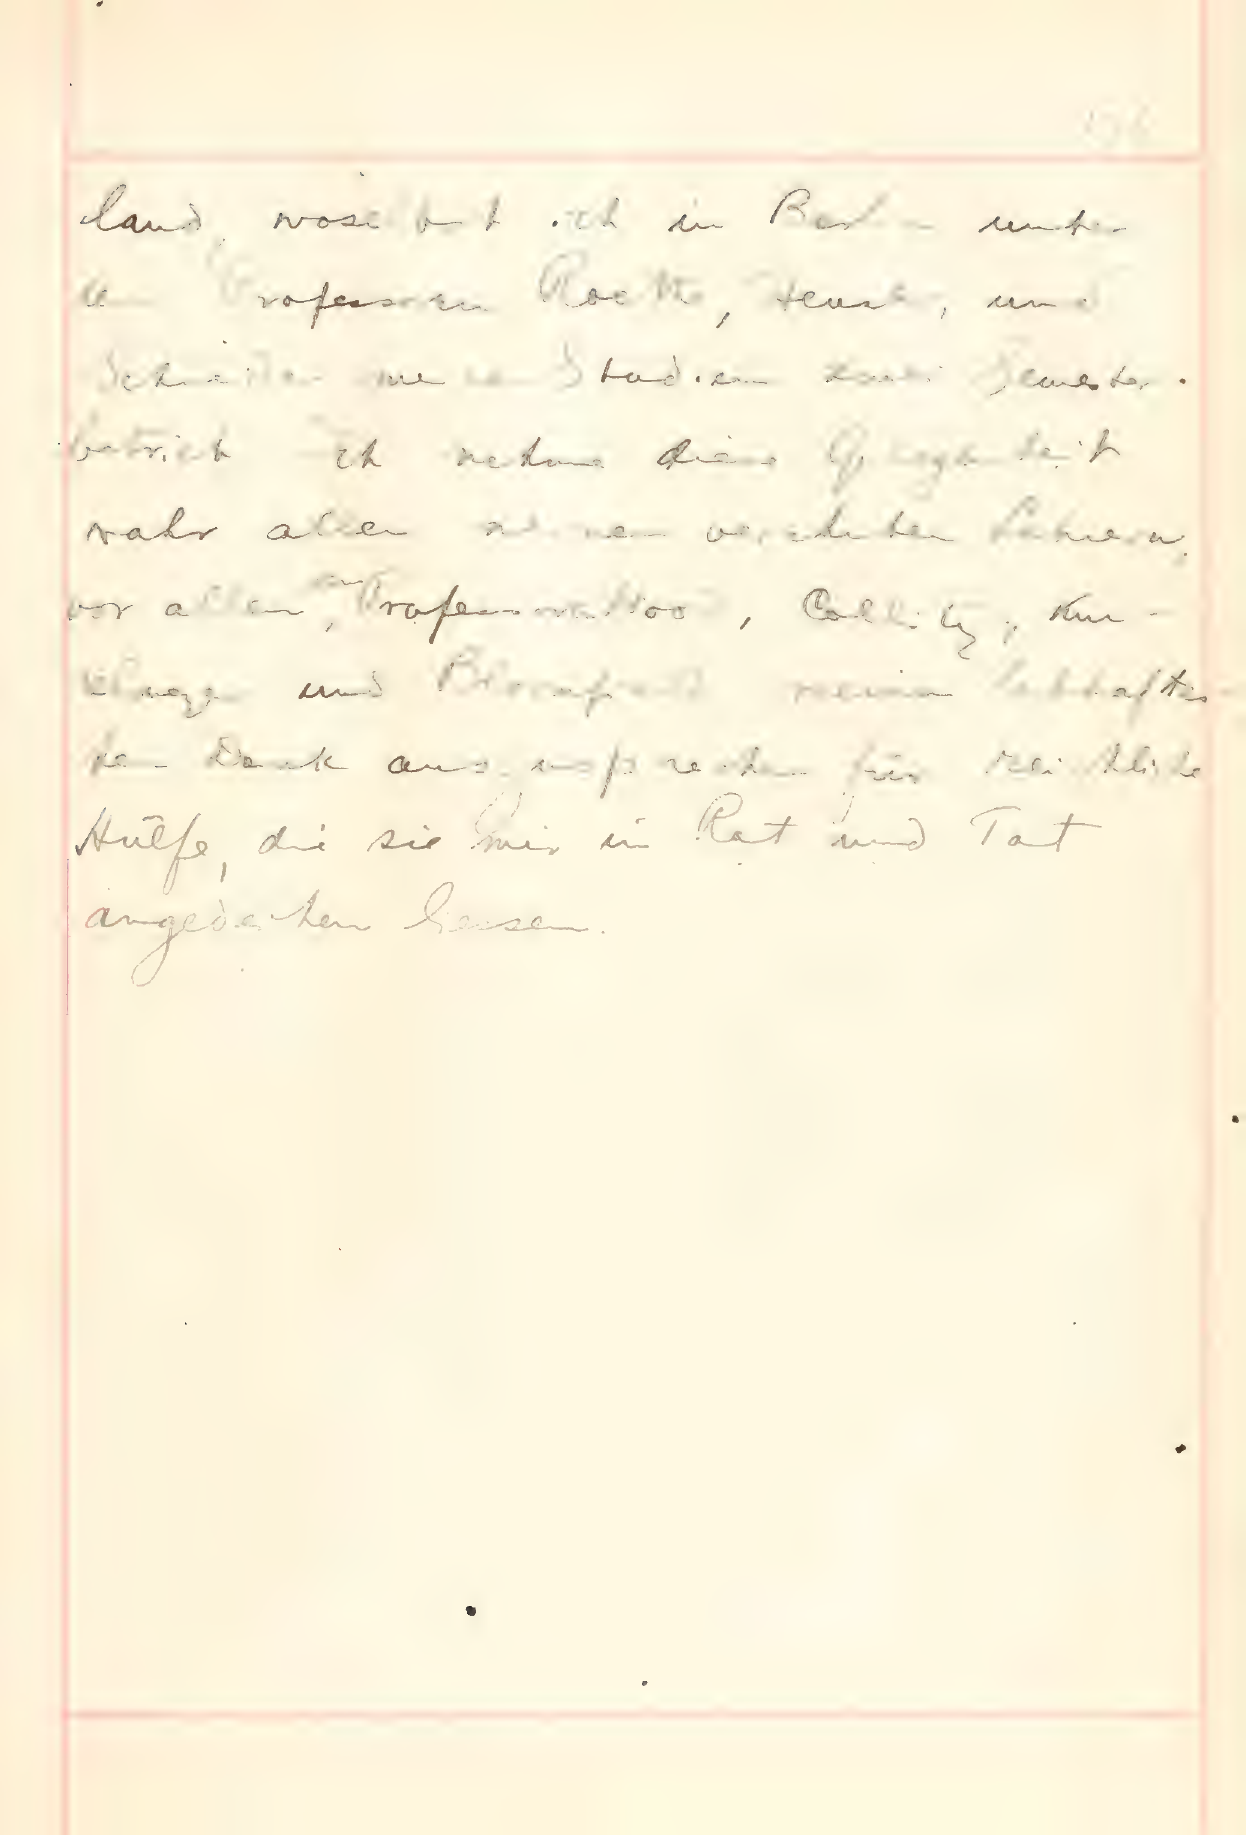 land, woselbst ich in Berlin unter
den Professoren Roethe, Heusler, und
Schneider meine Studien zwei Semester
betrieb. Ich nehme diese Gelegenheit
wahr allen meinen verehrten Lehrern,
vor allen, den Professoren Wood, Collitz, Kur-
relmeyer und Bloomfield meinen lebhaftes-
ten Dank auszusprechen für reichliche
Hülfe, die sie mir in Rat und Tat
angedeihen liessen.